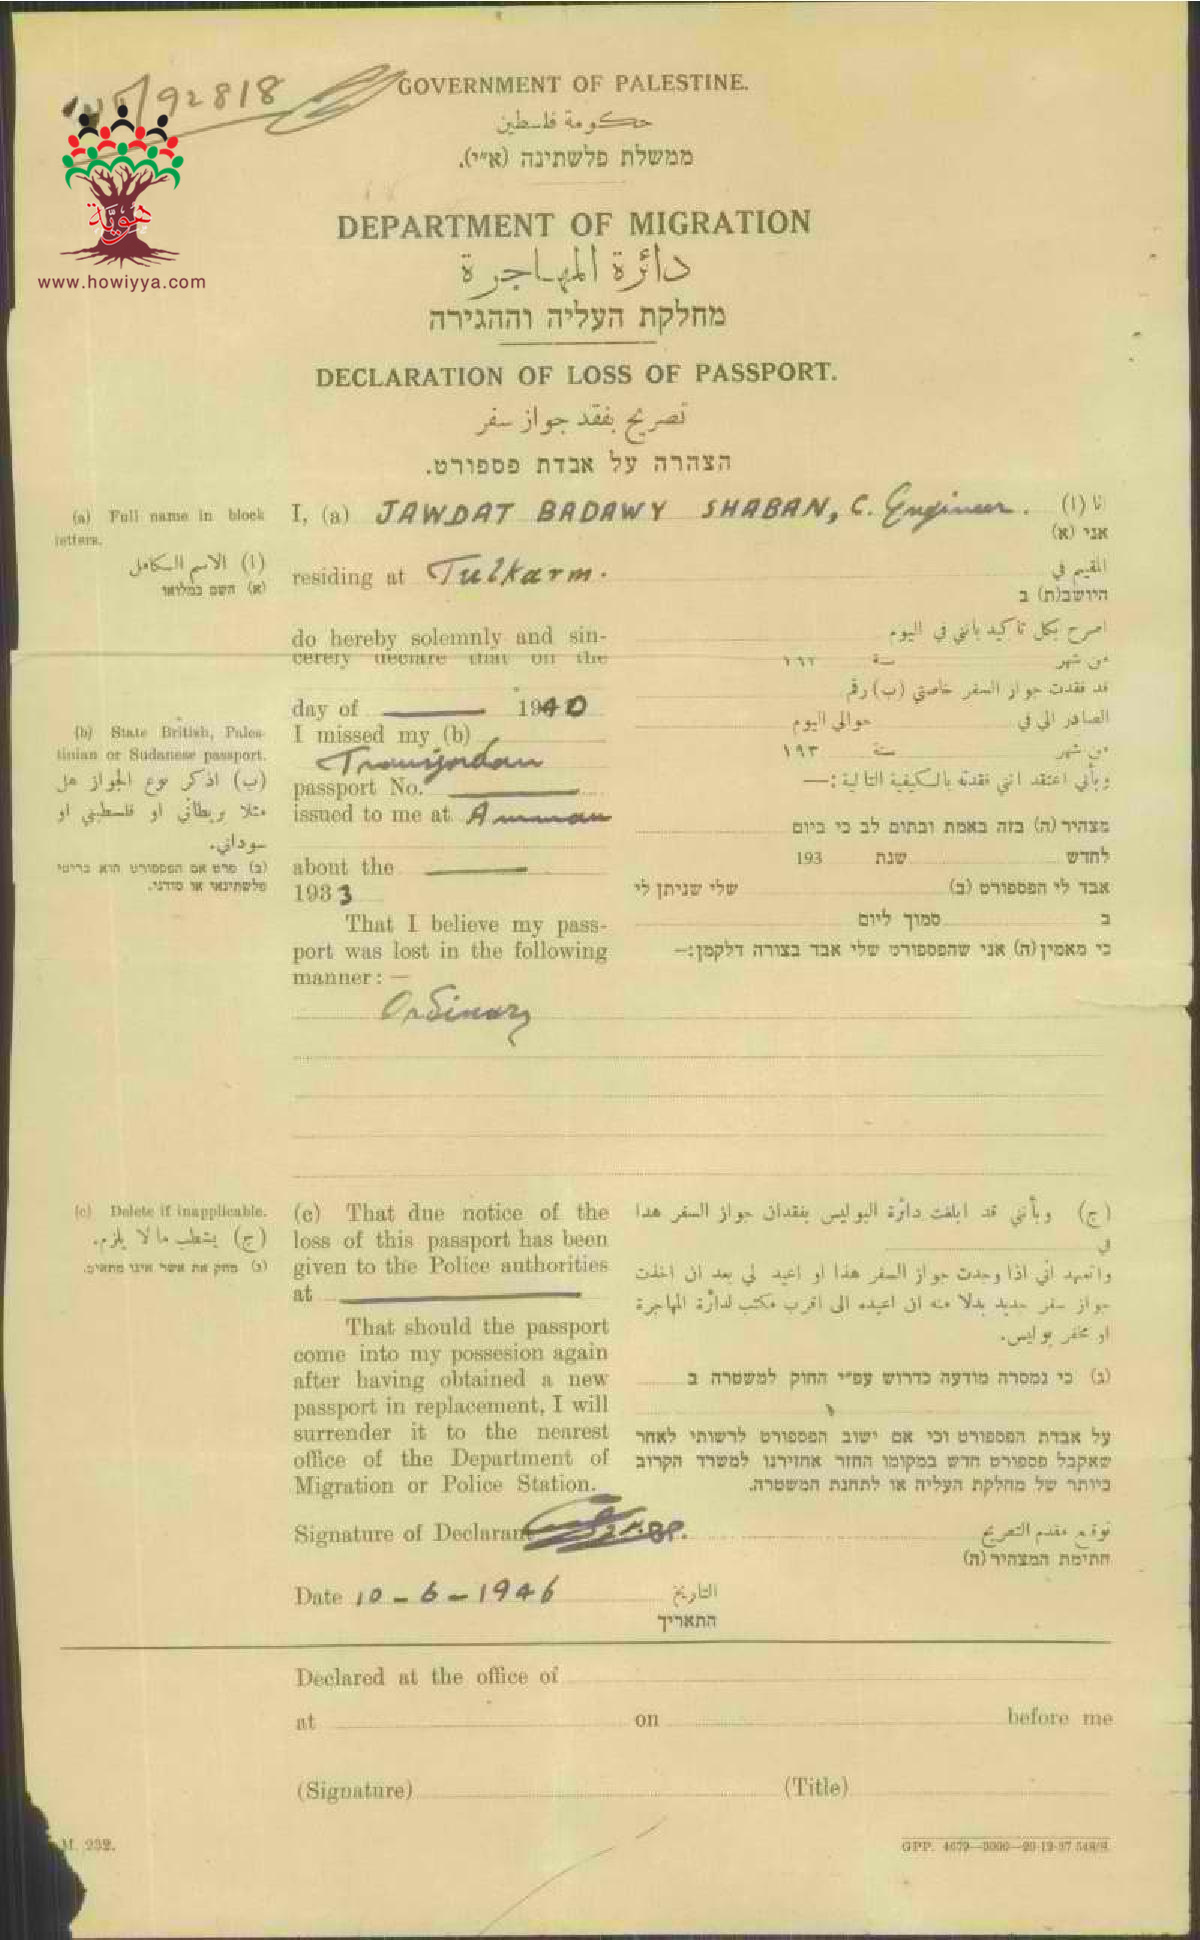 92818
GOVERNMENT OF PALESTINE.
حكومة فلسطين
ממשלת פלשתינה (א״י).
هوية
www.howiyya.com
DEPARTMENT OF MIGRATION
دائرة المهاجرة
מחלקת העליה וההגירה
DECLARATION OF LOSS OF PASSPORT.
تصريح بفقد جواز سفر
הצהרה על אבדת פספורט.
(a) Full name in block letters.
(ا) الاسم الكامل
(א) השם במלואו
I, (a) JAWDAT BADAWY SHABAN, C. Engineer.
نا (ا)
אני (א)
residing at Tulkarm.
المقيم في
היושב(ת) ב
do hereby solemnly and sin-
cerely declare that on the
day of 1940
I missed my (b)
Transjordan
passport No.
issued to me at Amman
about the
1933
That I believe my pass-
port was lost in the following
manner: —
Ordinary
(b) State British, Pales-
tinian or Sudanese passport.
(ب) اذكر نوع الجواز هل
مثلا بريطاني او فلسطيني او
سوداني.
(ב) פרט אם הפספורט הוא בריטי
פלשתינאי או סודני.
اصرح بكل تأكيد بأنني في اليوم
من شهر سنة ١٩٢
قد فقدت جواز السفر خاصتي (ب) رقم
الصادر الي في حوالي اليوم
من شهر سنة ١٩٣
وبأني اعتقد انني فقدته بالكيفية التالية:—
מצהיר (ה) בזה באמת ובתום לב כי ביום
לחדש שנת 193
אבד לי הפספורט (ב) שלי שניתן לי
ב סמוך ליום
כי מאמין (ה) אני שהפספורט שלי אבד בצורה דלקמן:—
(c) Delete if inapplicable.
(ج) يشطب ما لا يلزم.
(ג) מחק את אשר אינו מתאים.
(c) That due notice of the
loss of this passport has been
given to the Police authorities
at
That should the passport
come into my possesion again
after having obtained a new
passport in replacement, I will
surrender it to the nearest
office of the Department of
Migration or Police Station.
(ج) وبأنني قد ابلغت دائرة البوليس بفقدان جواز السفر هذا
في
واتعهد اني اذا وجدت جواز السفر هذا او اعيد لي بعد ان اخذت
جواز سفر جديد بدلا منه ان اعيده الى اقرب مكتب لدائرة المهاجرة
او مخفر بوليس.
(ג) כי נמסרה מודעה כדרוש עפ״י החוק למשטרה ב
על אבדת הפספורט וכי אם ישוב הפספורט לרשותי לאחר
שאקבל פספורט חדש במקומו החזר אחזירנו למשרד הקרוב
ביותר של מחלקת העליה או לתחנת המשטרה.
Signature of Declarant
توقيع مقدم التصريح
חתימת המצהיר (ה)
Date 10-6-1946
التاريخ
התאריך
Declared at the office of
at on before me
(Signature) (Title)
M. 232.
GPP. 4679—3000—20-12-37 548/S.